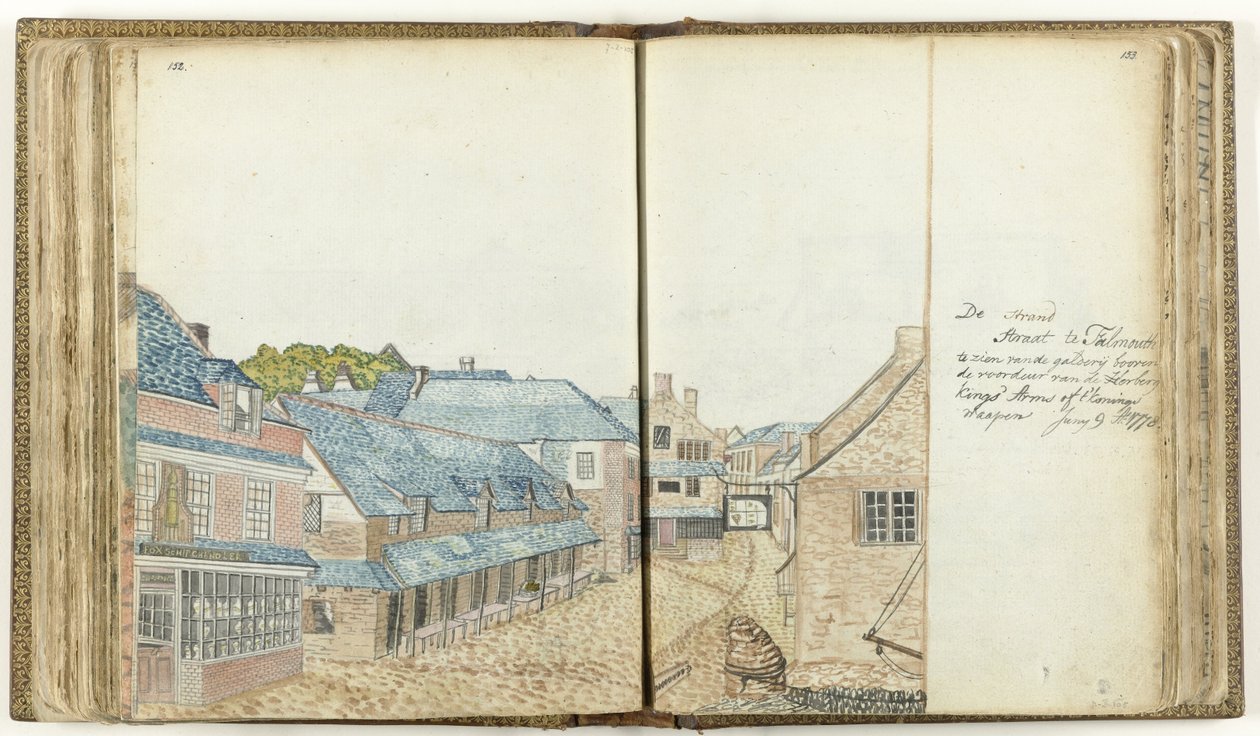 152.
7-2-108
153
FOX SCHIP CHANDLER
De strand
Straat te Falmouth
te zien van de galderij booven
de voordeur van de Herberg
Kings Arms of t'konings
waapen Juny 9 Ao. 1778